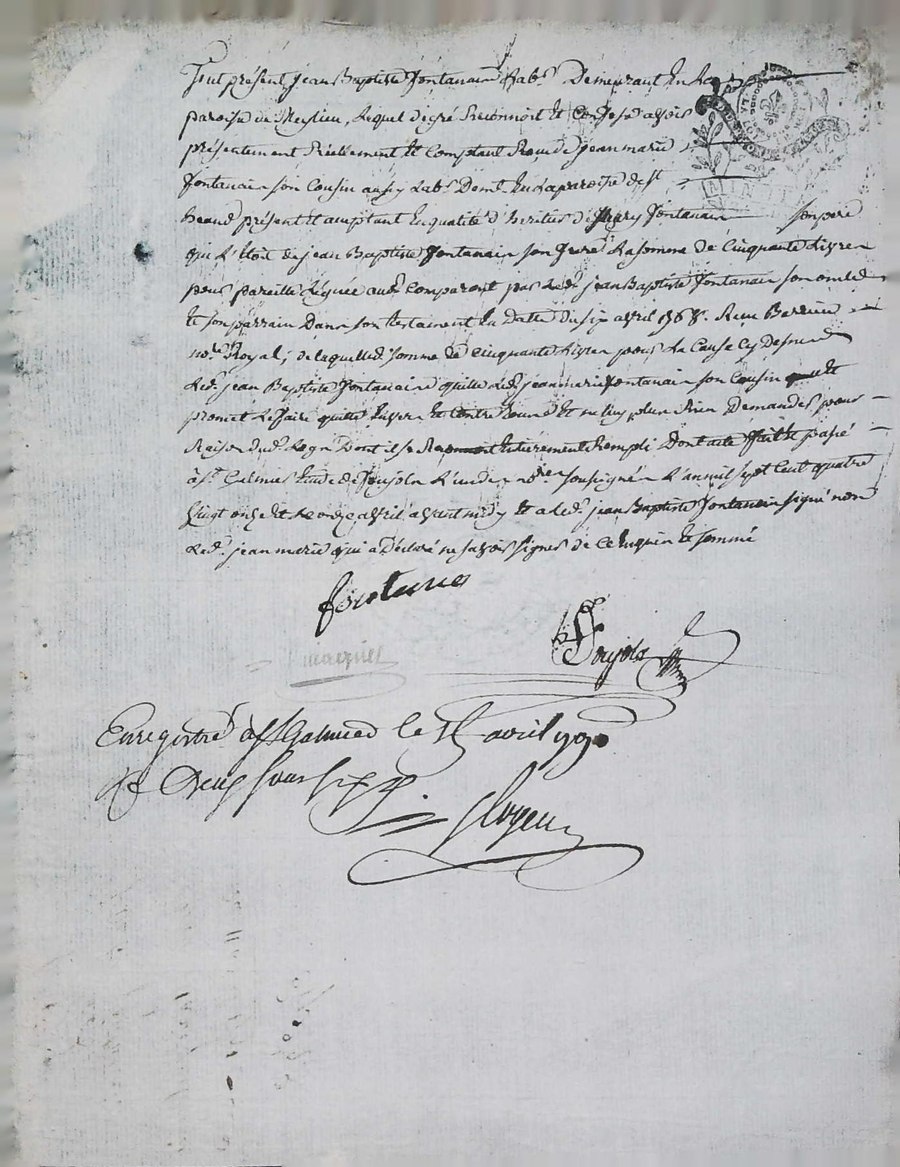 Fut présent jean Baptiste fontanain Lab.r Demeurant En La
paroisse de Meylieu, Lequel de gré Reconnoit Et Confesse avoir
présentement Réellement Et Comptant Receu de jean marie
fontanain son Cousin aussy Lab.r Dem.t En La paroisse de st
présent Et acceptant En qualité d'heritier de fontanain son pere
qui L'étoit de jean Baptiste fontanain son frere La somme de Cinquante Livres
pour pareille Léguée aud. Comparant par Led. jean Baptiste fontanain son oncle
Et son parrain Dans son testament En Datte du six avril 1768. Receu
no.re Royal; de laquelle somme de Cinquante Livres pour La Cause Cy Dessus
Led. jean Baptiste fontanain quitte Led. jean marie fontanain son Cousin Et
promet Le faire quitter Envers Et Contre tous Et ne luy plus Rien Demander pour
Raison dud. Legs Dont il se Entierement Rempli Dont acte fait Et passé
à st. Galmier Etude de foujols L'un des no.res soussignés L'an mil sept Cent quatre
Vingt onze Et Le onze avril avant midy Et a Led. jean Baptiste fontanain signé non
Led. jean marie qui a Déclaré ne savoir signer de Ce Enquis Et sommé
fontanes
foujols
Enregistré a st Galmier le 15 avril 
R deux sous six